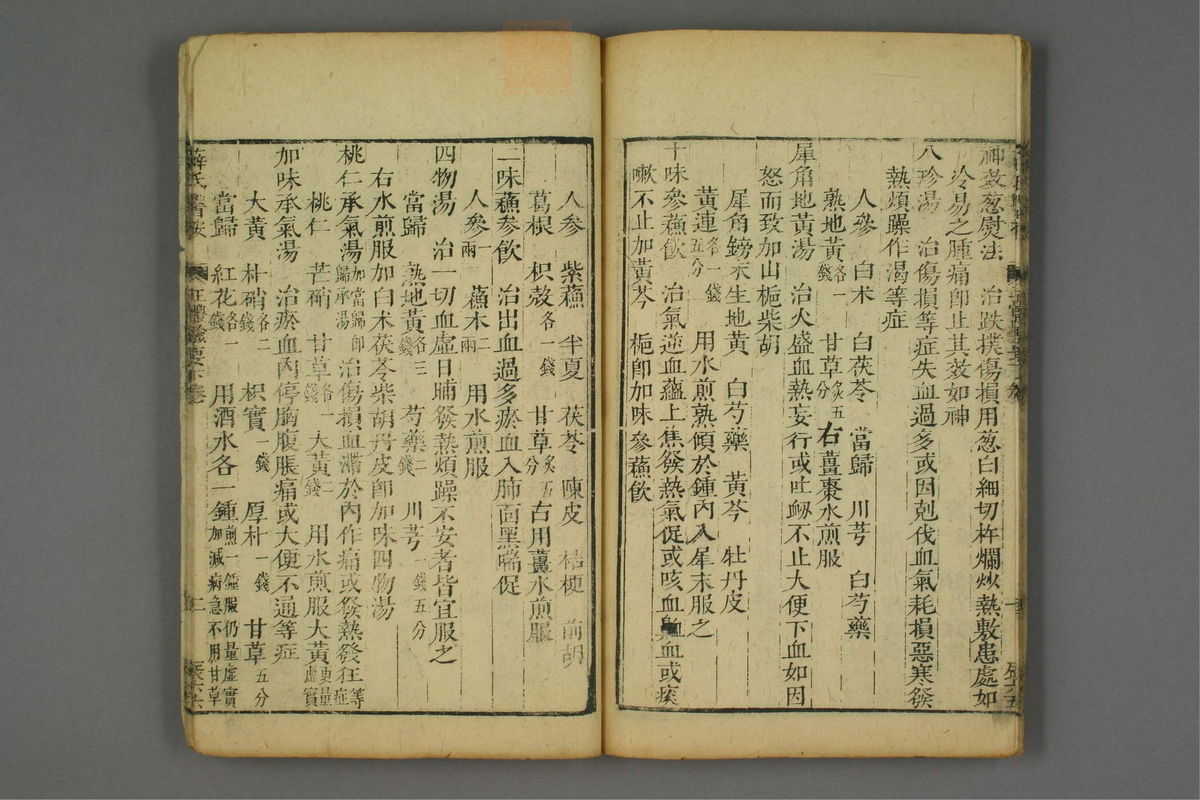 神效葱熨法　治跌撲傷損用葱白細切杵爛炒熱敷患處如
冷易之腫痛卽止其效如神
八珍湯　治傷損等症失血過多或因剋伐血氣耗損惡寒發
熱煩躁作渴等症
人參　白朮　白茯苓　當歸　川芎　白芍藥
熟地黃各一錢　甘草炙五分　右薑棗水煎服
犀角地黃湯　治火盛血熱妄行或吐衂不止大便下血如因
怒而致加山梔柴胡
犀角鎊末生地黃　白芍藥　黃芩　牡丹皮
黃連各一錢五分　用水煎熟傾於鍾內入犀末服之
十味參蘓飲　治氣逆血蘊上焦發熱氣促或咳血衂血或痰
嗽不止加黃芩　梔卽加味參蘓飲
人參　紫蘓　半夏　茯苓　陳皮　桔梗　前胡
葛根　枳殼各一錢　甘草炙五分　右用薑水煎服
二味蘓參飲　治出血過多瘀血入肺面黑喘促
人參一兩　蘓木二兩　用水煎服
四物湯　治一切血虛日晡發熱煩躁不安者皆宜服之
當歸　熟地黃各三錢　芍藥二錢　川芎一錢五分
右水煎服加白朮茯苓柴胡丹皮卽加味四物湯
桃仁承氣湯加當歸卽歸承湯　治傷損血滯於內作痛或發熱發狂等症
桃仁　芒硝　甘草各一錢　大黃二錢　用水煎服大黃更量虛實
加味承氣湯　治瘀血內停胸腹脹痛或大便不通等症
大黃　朴硝各二錢　枳實一錢　厚朴一錢　甘草五分
當歸　紅花各一錢　用酒水各一鍾煎一鍾服仍量虛實加減病急不用甘草
薛氏醫按　正體類要下卷